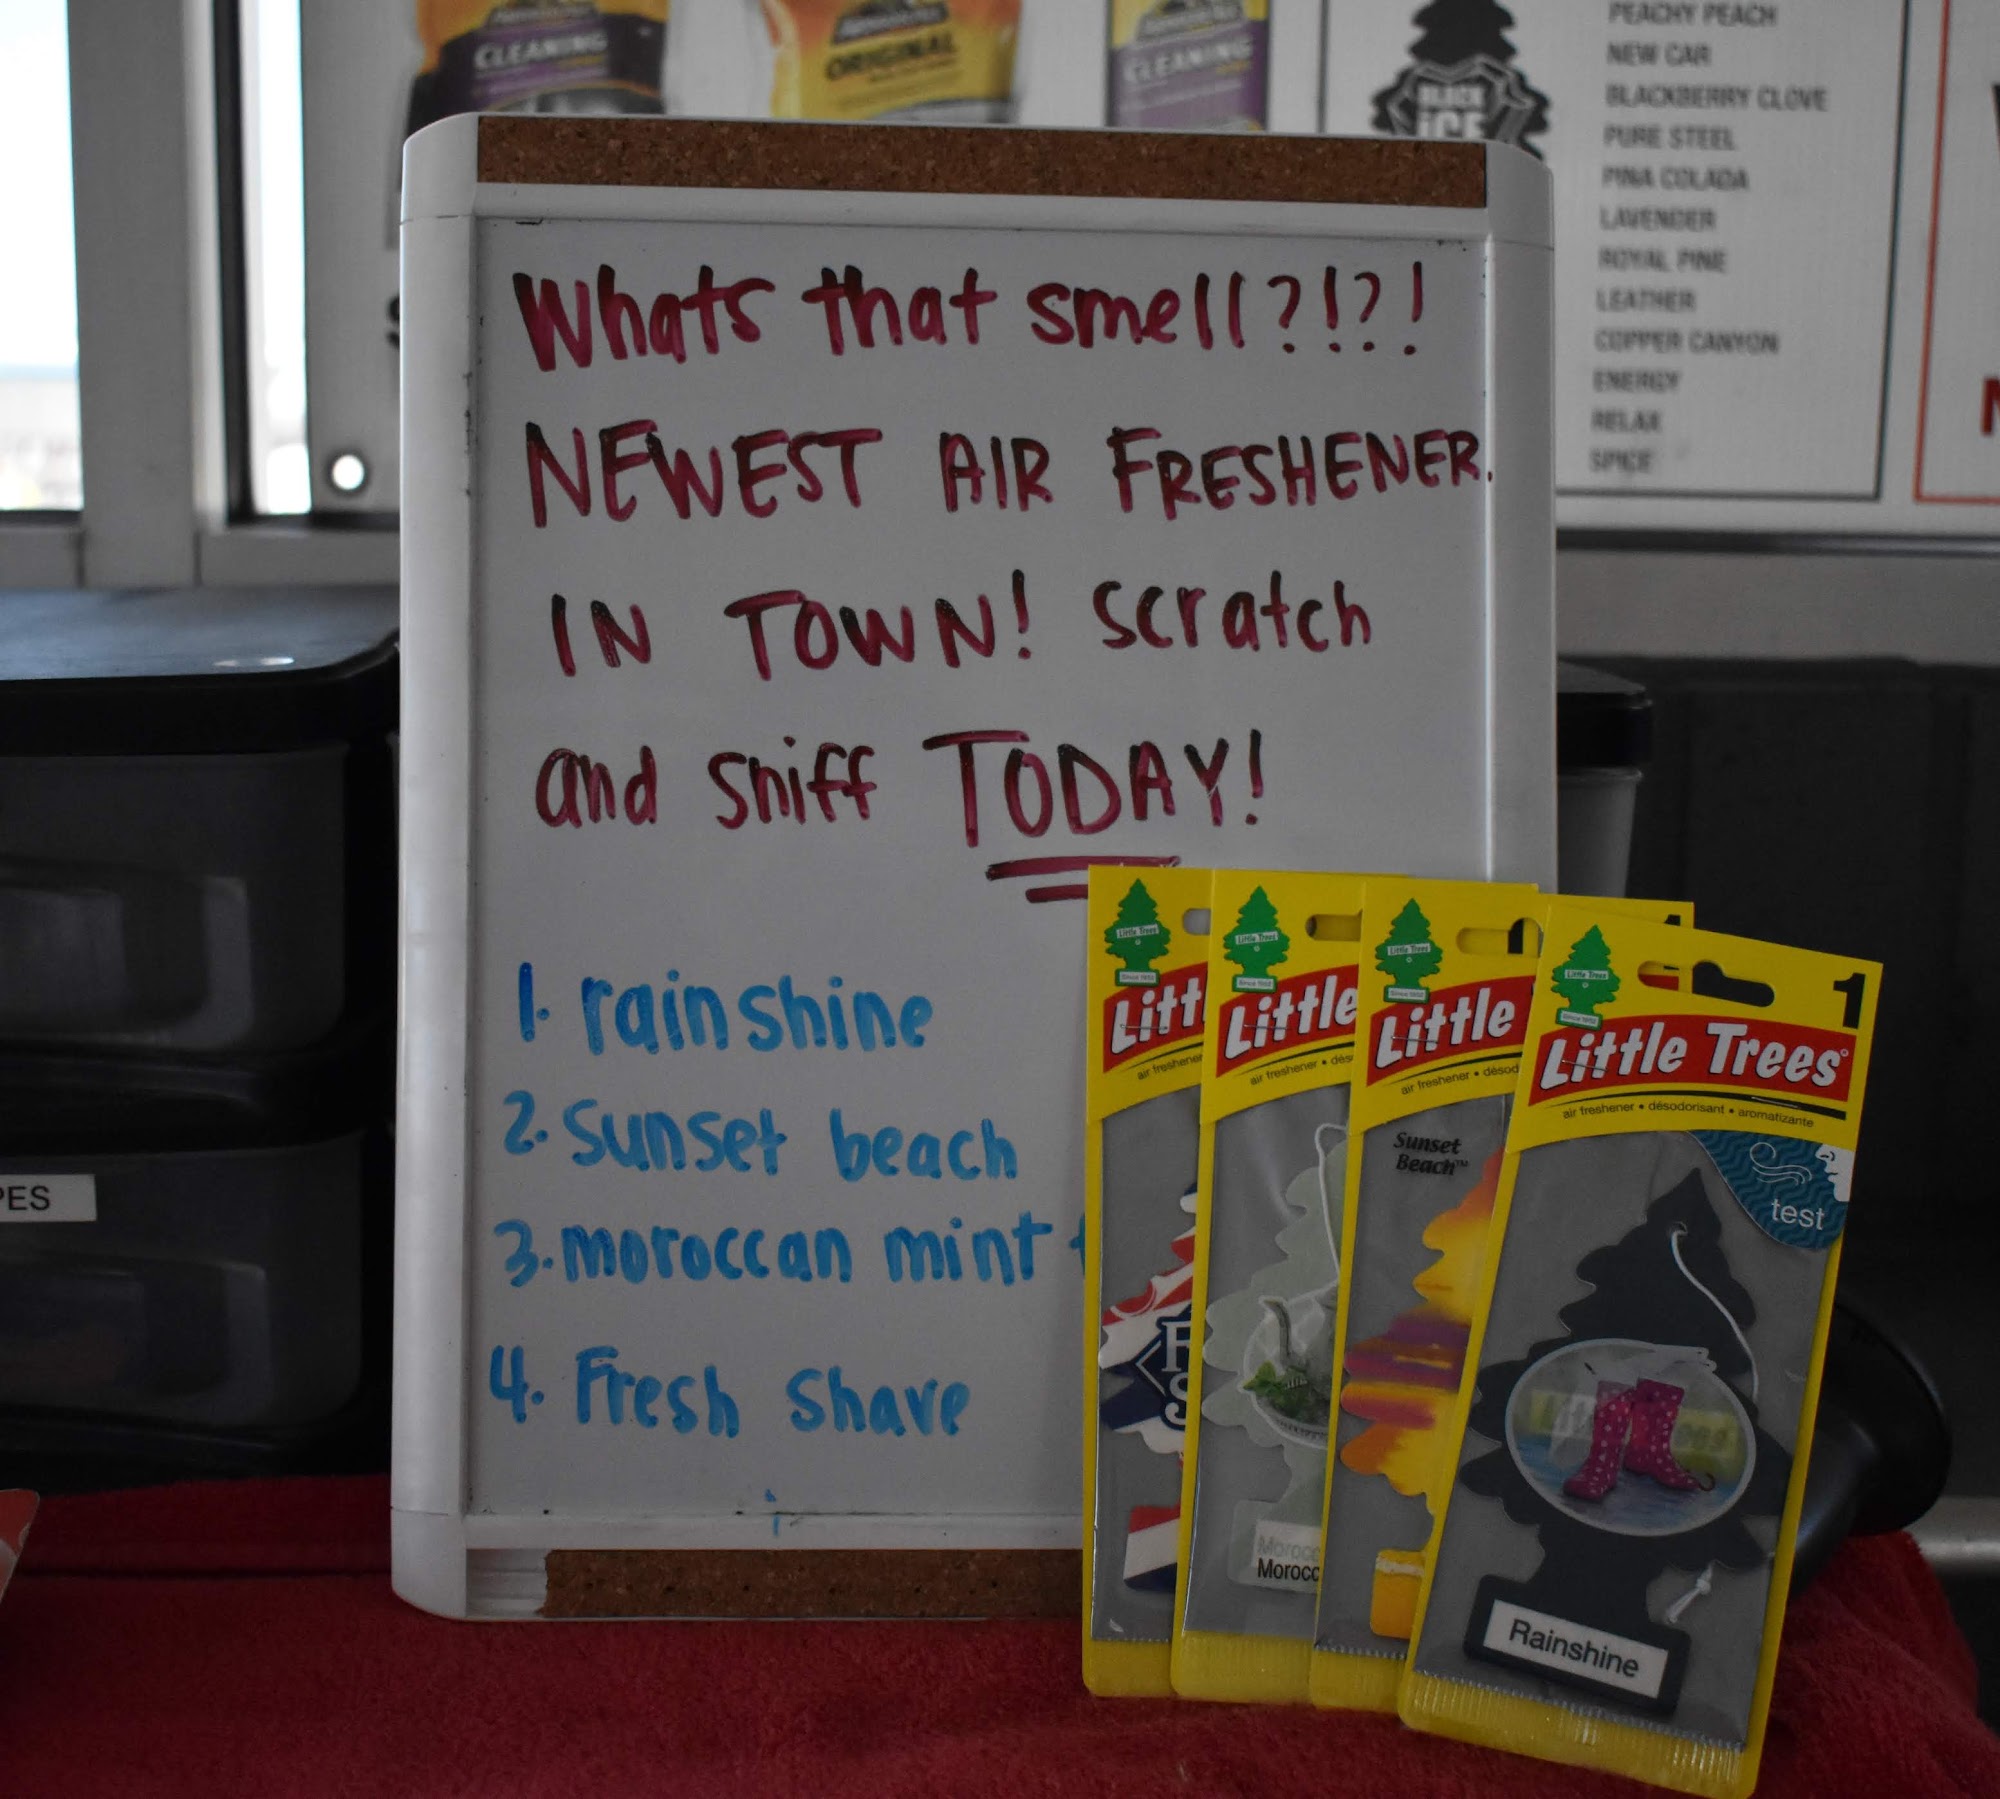 CLEANING
ORIGINAL
CLEANING
BLACK
ICE
PEACHY PEACH
NEW CAR
BLACKBERRY CLOVE
PURE STEEL
PINA COLADA
LAVENDER
ROYAL PINE
LEATHER
COPPER CANYON
ENERGY
RELAX
SPICE
Whats that smell?!?!
NEWEST AIR FRESHENER.
IN TOWN! scratch
and sniff TODAY!
1. rainshine
2. sunset beach
3. moroccan mint
4. Fresh shave
PES
Little Trees
Since 1952
Litt
air freshener
Little Trees
Since 1952
Little
air freshener • dés
Morocc
Morocc
Little Trees
Since 1952
Little
air freshener • désod
Sunset
Beach™
1
Little Trees
Since 1952
Little Trees
air freshener • désodorisant • aromatizante
test
Rainshine